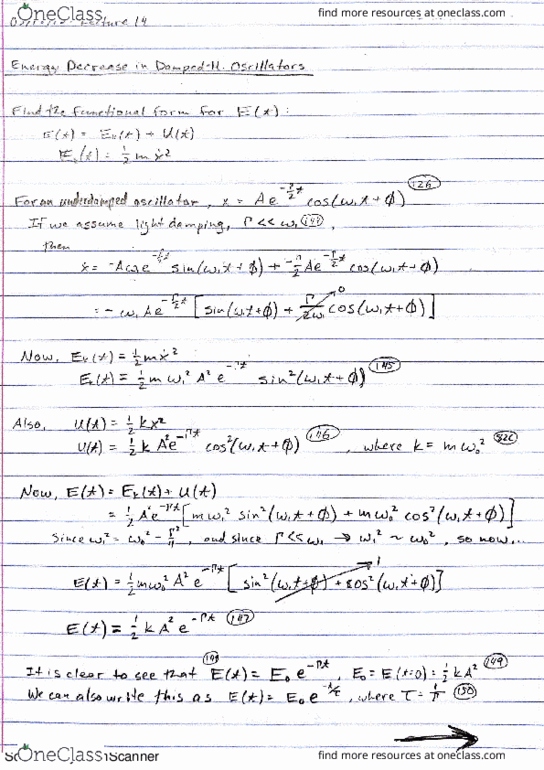 OneClass
find more resources at oneclass.com
Lecture 14
Energy Decrease in Damped-H. Oscillators
Find the functional form for E(t):
E(t) = Eₖ(t) + U(t)
Eₖ(t) = ½ m ẋ²
For an underdamped oscillator, x = A e^(-Γ/2 t) cos(ω₁t + φ) (126)
If we assume light damping, Γ << ω₁,
then
ẋ = -Aω₁e^(-Γ/2 t) sin(ω₁t + φ) + -Γ/2 A e^(-Γ/2 t) cos(ω₁t + φ)
= -ω₁ A e^(-Γ/2 t) [sin(ω₁t + φ) + Γ/2ω₁ cos(ω₁t + φ)] 0
Now, Eₖ(t) = ½ m ẋ²
Eₖ(t) = ½ m ω₁² A² e^(-Γt) sin²(ω₁t + φ) (145)
Also, U(t) = ½ k x²
U(t) = ½ k A² e^(-Γt) cos²(ω₁t + φ) (146), where k = mω₀²
Now, E(t) = Eₖ(t) + U(t)
= ½ A² e^(-Γt) [mω₁² sin²(ω₁t + φ) + mω₀² cos²(ω₁t + φ)]
Since ω₁² = ω₀² - Γ²/4, and since Γ << ω₁ → ω₁² ~ ω₀², so now...
E(t) = ½ mω₀² A² e^(-Γt) [sin²(ω₁t + φ) + cos²(ω₁t + φ)] 1
E(t) = ½ k A² e^(-Γt) (147)
It is clear to see that (148) E(t) = E₀ e^(-Γt), E₀ = E(t=0) = ½ kA² (149)
We can also write this as E(t) = E₀ e^(-t/τ), where τ = 1/Γ (150)
OneClass
Scanner
find more resources at oneclass.com